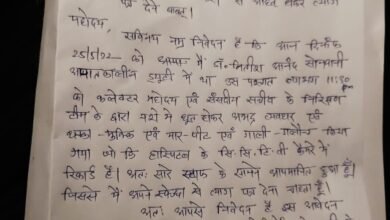 महोदय,
सविनय नम्र निवेदन है कि आज दिनाँक
25/5/22 को क्षमता में डॉ. नितीश आनंद सोनवानी
आपातकालीन ड्यूटी में था उस पश्चात लगभग 11:30 pm
को कलेक्टर महोदय एवं संसदीय सचीव के निरिक्षण
टीम के द्वारा नशे में धुत होकर अभद्र व्यवहार एवं
धक्का-मुक्कि एवं मार-पीट एवं गाली-गलौच किया
गया जो कि हास्पिटल के सि.सि.टि.वी कैमेरे में
रिकार्ड है। अतः सारे स्टाफ के सामने अपमानित हुआ हूँ।
जिससे मैं अपने स्वेच्छा से त्याग पत्र देना चाहता हूँ।
अतः आपसे निवेदन है इस आवेदन